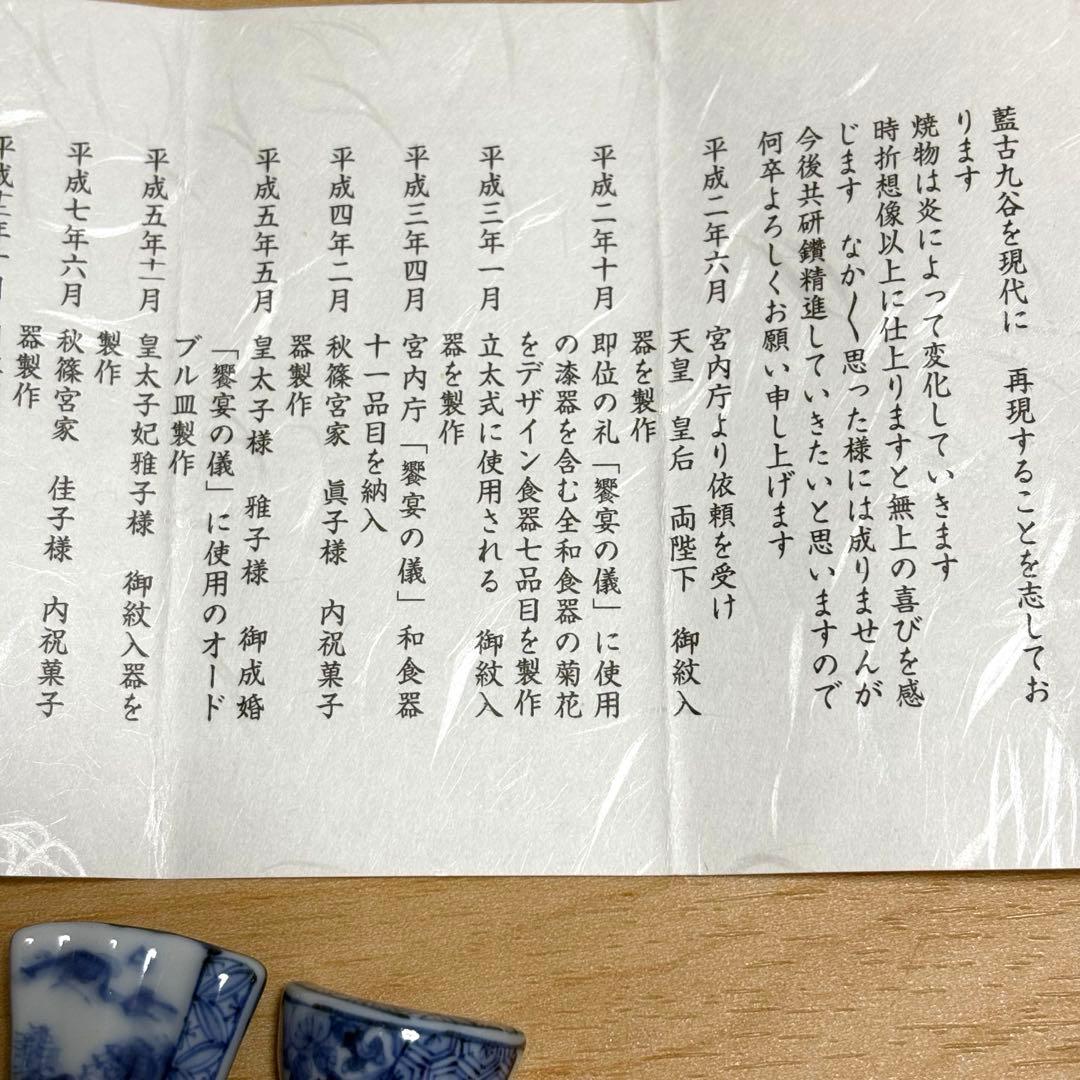 藍古九谷を現代に　再現することを志してお
ります
焼物は炎によって変化していきます
時折想像以上に仕上りますと無上の喜びを感
じます　なか〱思った様には成りませんが
今後共研鑽精進していきたいと思いますので
何卒よろしくお願い申し上げます
平成二年六月　宮内庁より依頼を受け
天皇　皇后　両陛下　御紋入
器を製作
平成二年十月　即位の礼「饗宴の儀」に使用
の漆器を含む全和食器の菊花
をデザイン食器七品目を製作
平成三年一月　立太式に使用される　御紋入
器を製作
平成三年四月　宮内庁「饗宴の儀」和食器
十一品目を納入
平成四年二月　秋篠宮家　眞子様　内祝菓子
器製作
平成五年五月　皇太子様　雅子様　御成婚
「饗宴の儀」に使用のオード
ブル皿製作
平成五年十一月　皇太子妃雅子様　御紋入器を
製作
平成七年六月　秋篠宮家　佳子様　内祝菓子
器製作